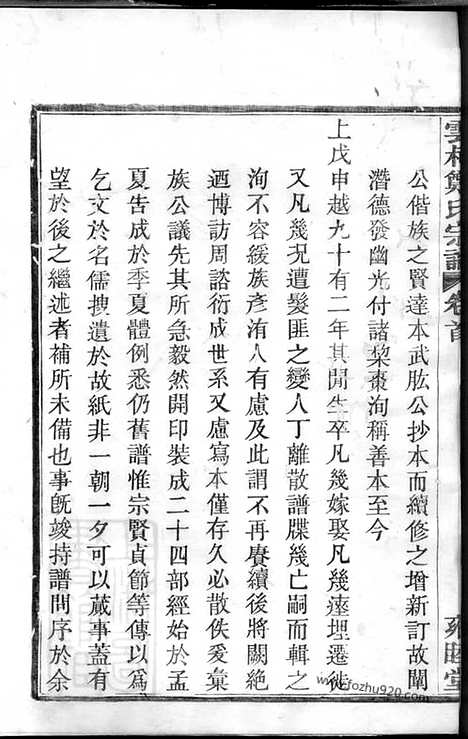 雲林鄭氏宗譜 卷首
雍睦堂
公偕族之賢達本武肱公抄本而續修之增新訂故闡
潛德發幽光付諸棃棗洵稱善本至今
上戊申越九十有二年其閒生卒凡幾嫁娶凡幾塟埋遷徙
又凡幾況遭髮匪之變人丁離散譜牒幾亡嗣而輯之
洵不容緩族彥洧人有慮及此謂不再賡續後將闕絶
迺博訪周諮衍成世系又慮寫本僅存久必散佚爰稾
族公議先其所急毅然開印裝成二十四部經始於孟
夏告成於季夏體例悉仍舊譜惟宗賢貞節等傳以爲
乞文於名儒搜遺於故紙非一朝一夕可以蕆事蓋有
望於後之繼述者補所未備也事旣竣持譜問序於余
www.fozhu920.com